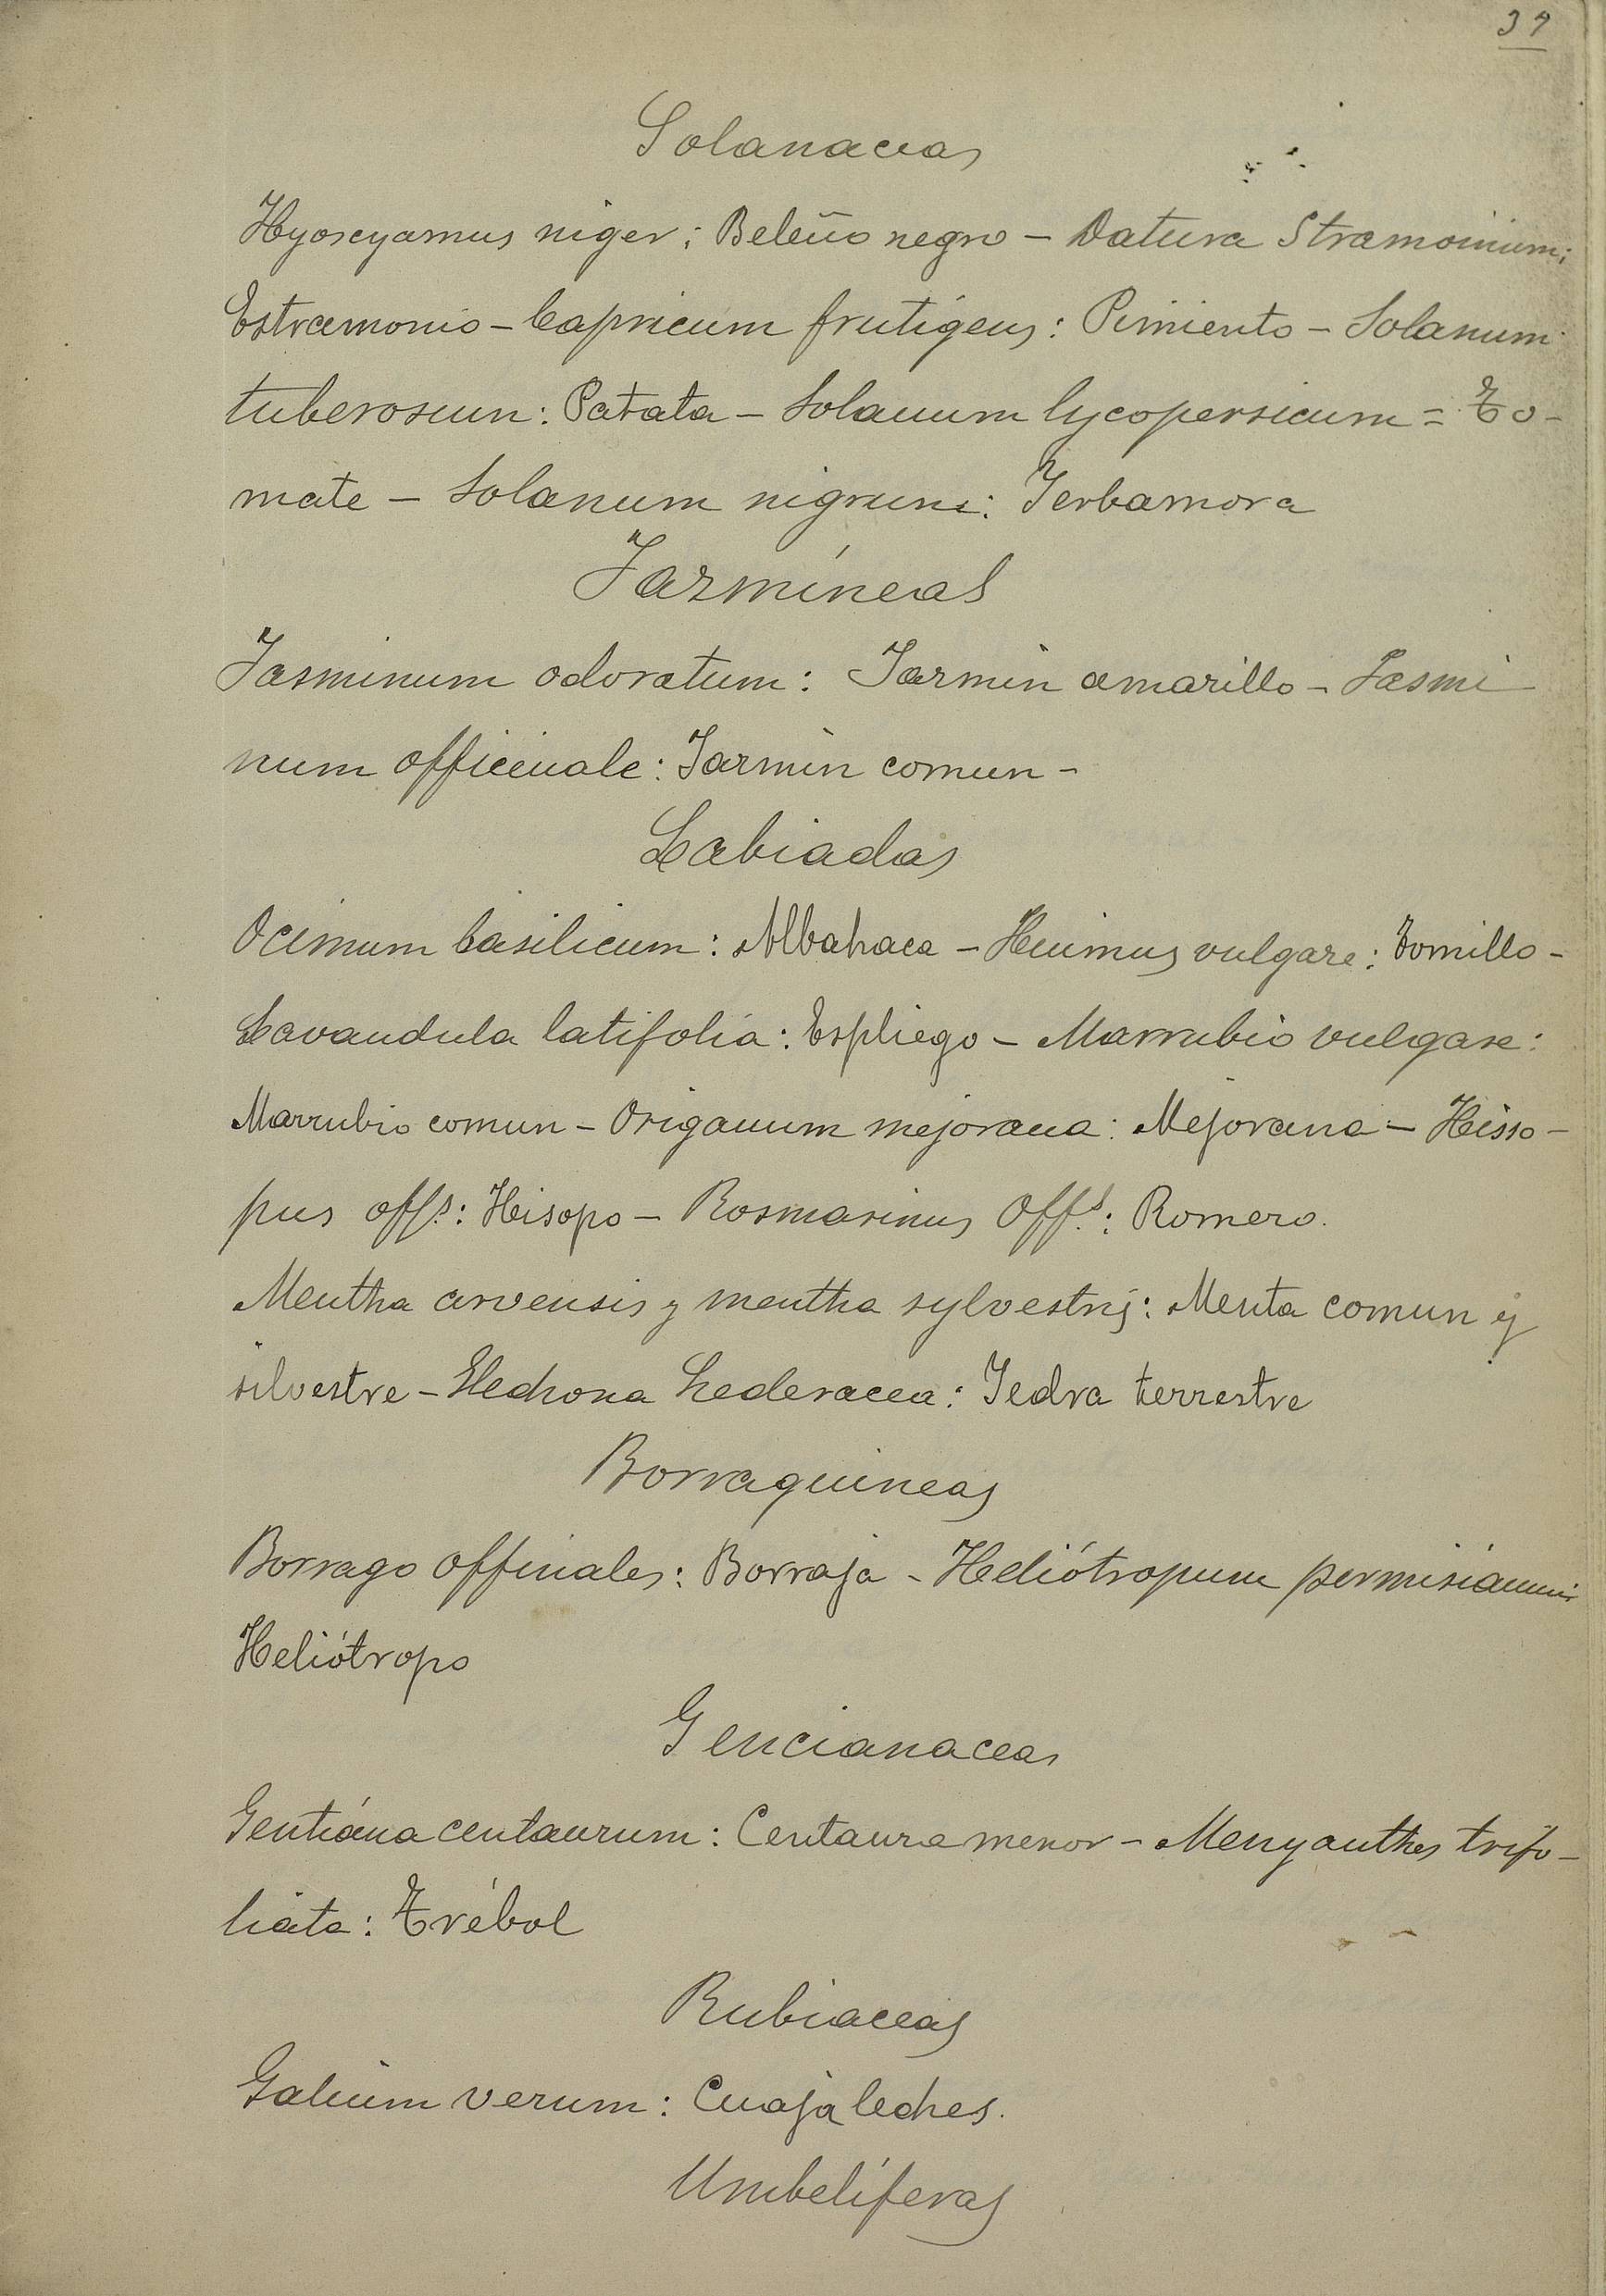 37
Solanaceas
Hyoscyamus niger: Beleño negro - Datura Stramoinium;
Estramonio - Capsicum frutígens: Pimiento - Solanum
tuberosum: Patata - Solanum lycopersicum = To-
mate - Solanum nigrum: Yerbamora
Jazmíneas
Jasminum odoratum: Jazmin amarillo - Jasmi-
num officinale: Jazmin comun -
Labiadas
Ocimum basilicum: Albahaca - vulgare: Tomillo -
Lavandula latifolia: Espliego - Marrubio vulgare:
Marrubio comun - Origanum mejorana: Mejorana - Hisso-
pus offs: Hisopo - Rosmarinus Offs.: Romero.
Mentha arvensis y mentha sylvestris: Menta comun y
silvestre - hederacea: Yedra terrestre
Borraguineas
Borrago offinales: Borraja - Heliótropum
Heliótropo
Gencianaceas
Gentiána centaurum: Centaura menor - Menyanthes trifo-
liata: Trébol
Rubiaceas
Galium verum: Cuaja leches.
Umbelíferas